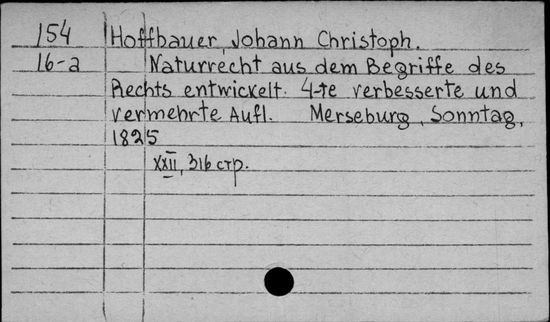 154 Hoffbauer, Johann Christoph.
16-a Naturrecht aus dem Begriffe des
Rechts entwickelt. 4-te verbesserte und
vermehrte Aufl. Merseburg, Sonntag,
1825
XXII, 316 стр.